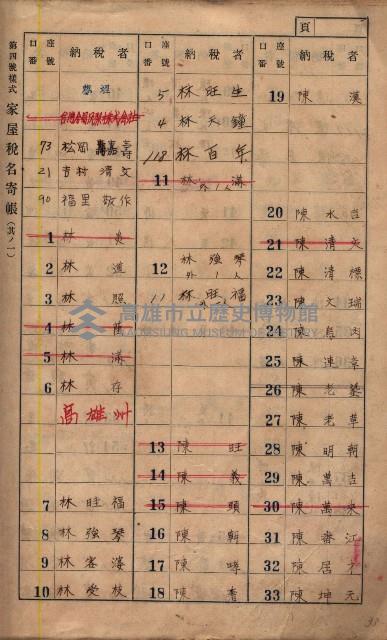 頁
第四號樣式 家屋稅名寄帳(其ノ一)
口座番號 納稅者
73 松岡 壽
21 吉村 清文
90 福里 敬作
1 林
2 林 道
3 林 照
4 林
5 林 滿
6 林 存
高雄州
7 林旺福
8 林強琴
9 林客
10 林愛枝
口座番號 納稅者
5 林旺生
4 林天鐘
118 林百年
11 林 滿
外1人
12 林強琴
外1人
11 林旺福
13 陳 旺
14 陳 義
15 陳 頭
16 陳
17 陳
18 陳 香
口座番號 納稅者
19 陳 漢
20 陳水吉
21 陳清
22 陳清標
23 陳文瑞
24 陳
25 陳連章
26 陳老
27 陳老草
28 陳明朝
29 陳萬吉
30 陳萬來
31 陳 江
32 陳居
33 陳坤元
高雄市立歷史博物館
KAOHSIUNG MUSEUM OF HISTORY